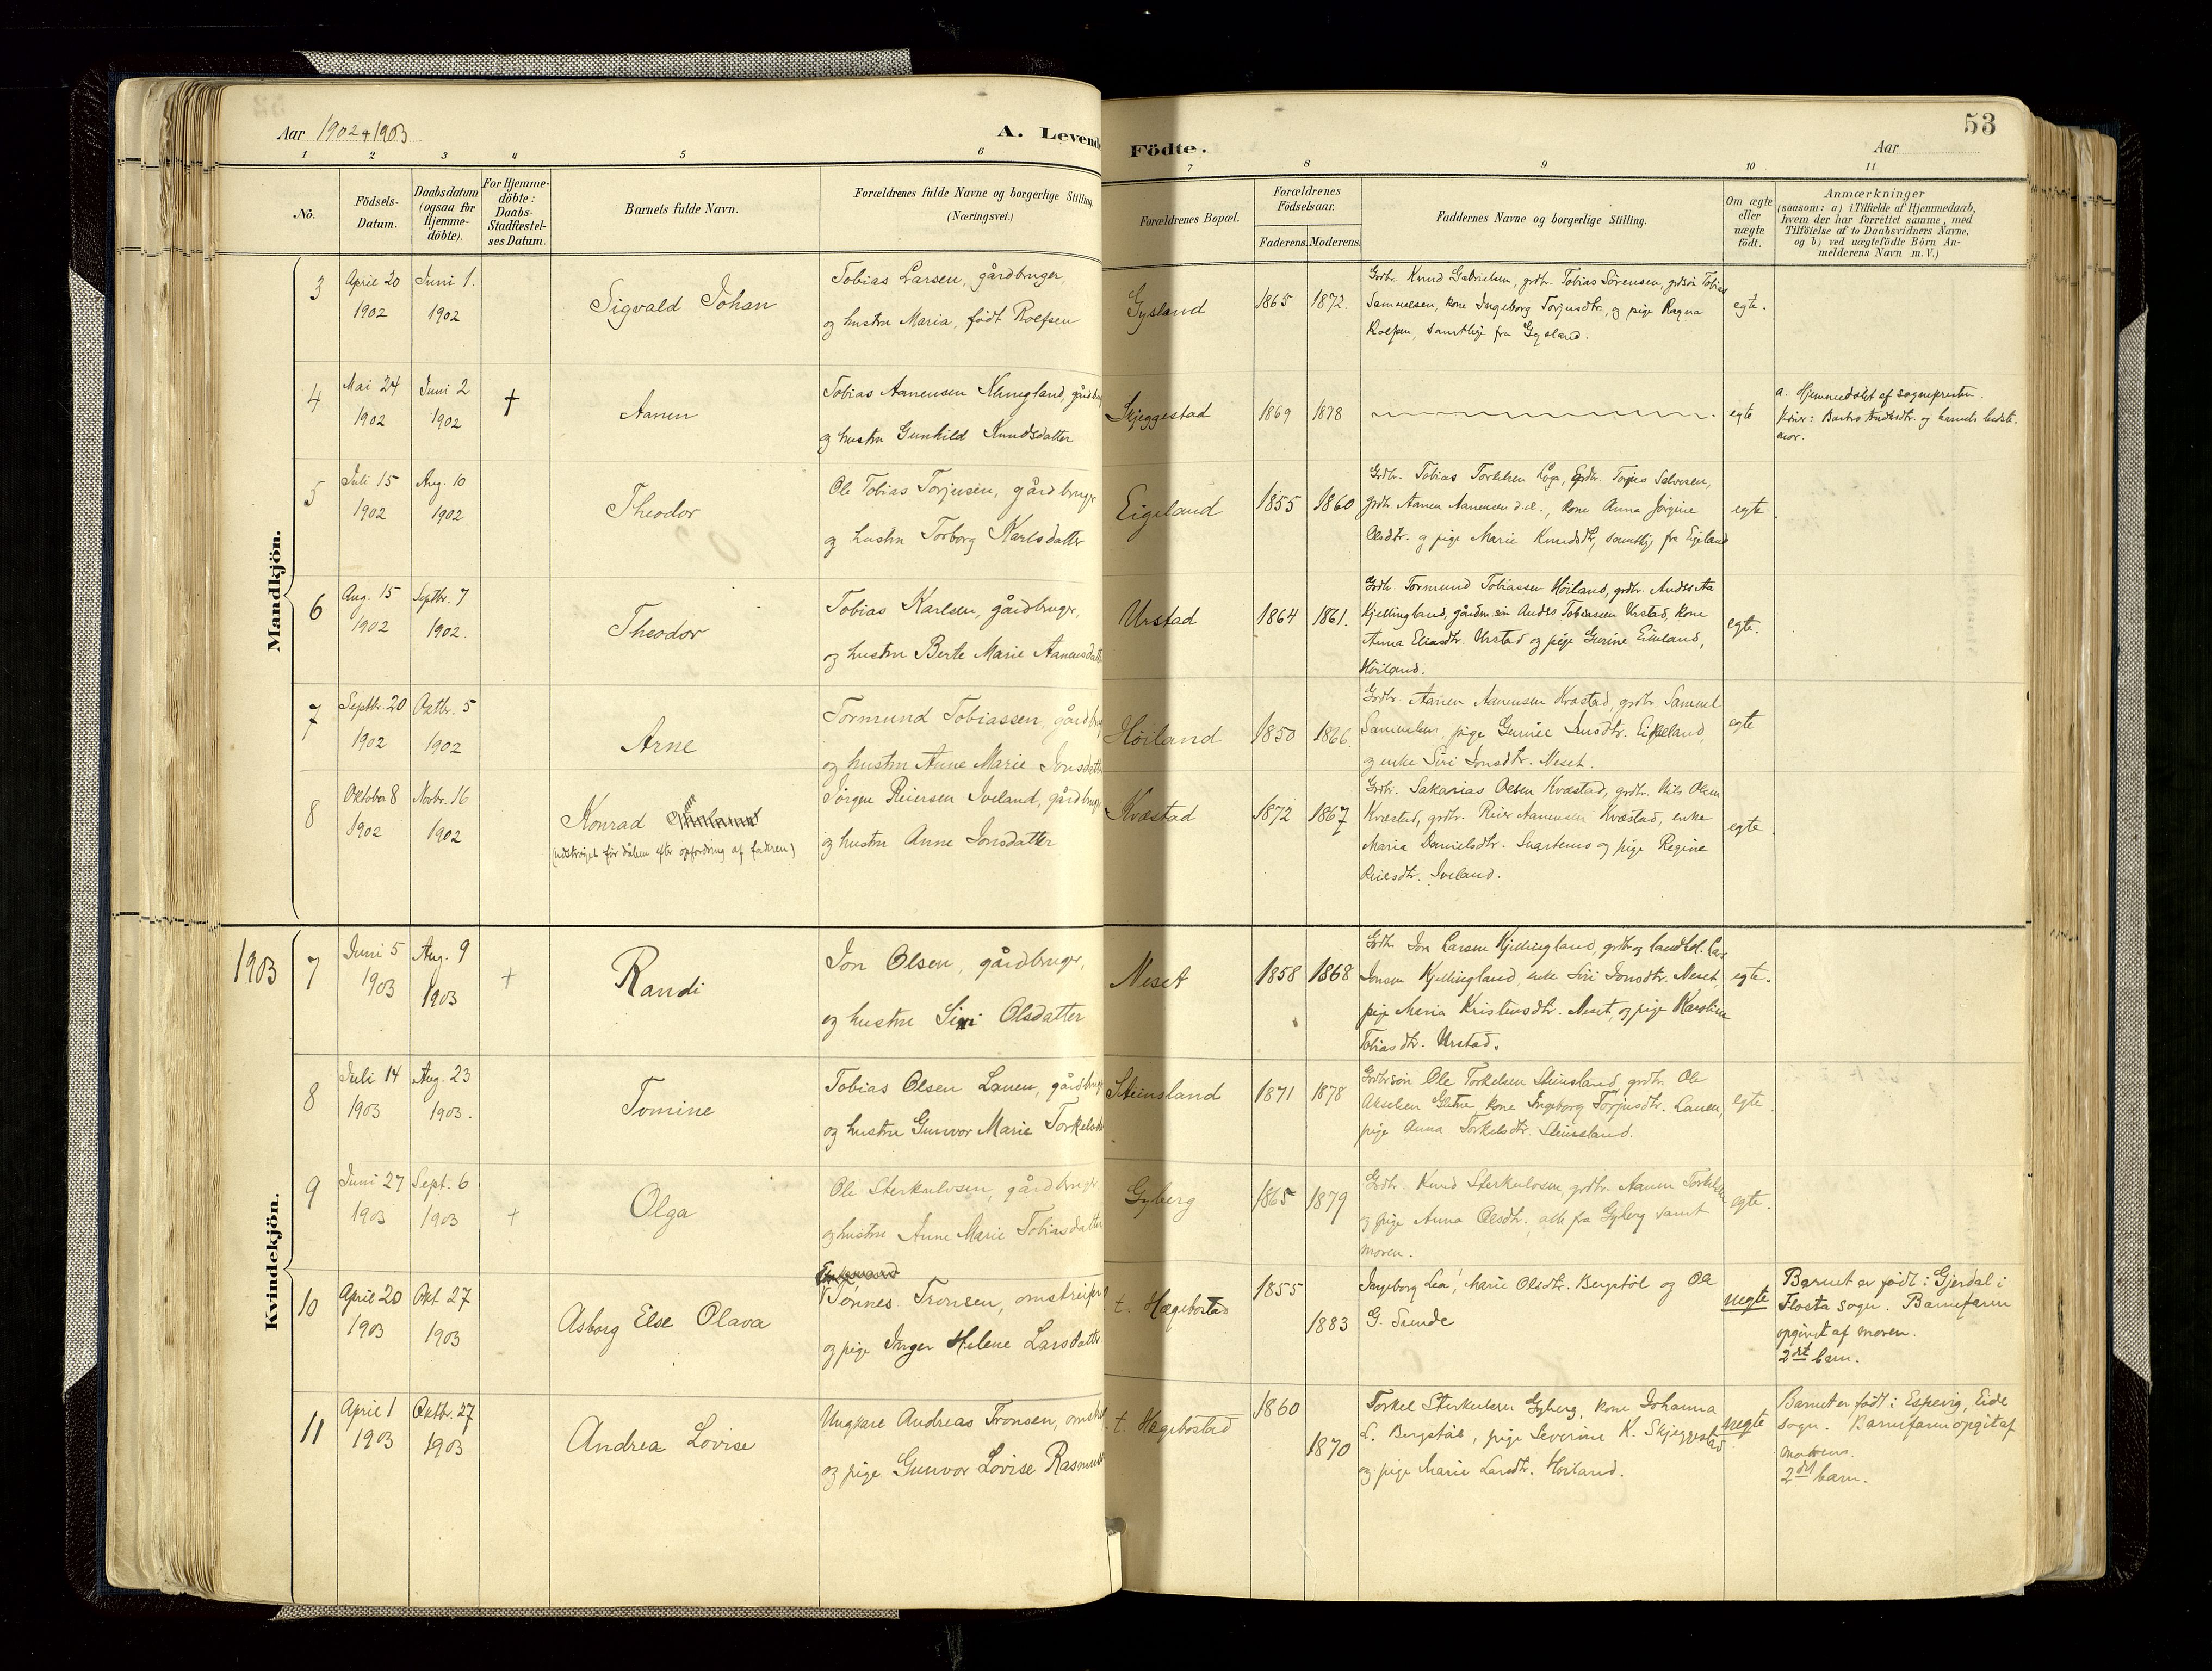 53
Aar 1902+1903
A. Levend
Födte.
Aar
1 2 3 4 5 6 7 8 9 10 11
No.
Födsels-
Datum.
Daabsdatum
(ogsaa for
Hjemme-
döbte).
For Hjemme-
döbte:
Daabs-
Stadfæstel-
ses Datum.
Barnets fulde Navn.
Forældrenes fulde Navne og borgerlige Stilling
(Næringsvei.)
Forældrenes Bopæl.
Forældrenes
Födselsaar.
Faderens. Moderens.
Faddernes Navne og borgerlige Stilling.
Om ægte
eller
uægte
födt.
Anmærkninger
(saasom: a) i Tilfælde af Hjemmedaab,
hvem der har forrettet samme, med
Tilföielse af to Daabsvidners Navne,
og b) ved uægtefödte Börn An-
melderens Navn m.V.)
Mandkjön.
3
April 20
1902
Juni 1.
1902
Sigvald Johan
Tobias Larsen, gårdbruger,
og hustru Maria, født Rolfsen
Gysland
1865 1872.
Grdbr. Knud Gabrielsen, grdbr. Tobias Sörensen, grdsön Tobias
Samuelsen, kone Ingeborg Torjusdtr., og pige Ragna
Rolfsen, samtlige fra Gysland.
egte.
4
Mai 24
1902
Juni 2
1902
†
Aanen
Tobias Aanensen Klungland, gårdbru
og hustru Gunhild Knudsdatter
Skjeggestad
1869 1878
egte
a. Hjemmedöbt af sognepresten.
mor.
5
Juli 15
1902
Aug. 10
1902
Theodor
Ole Tobias Torjusen, gårdbruger
og hustru Torborg Karlsdatter
Eigeland
1855 1860
Grdbr. Tobias Torkelsen Löga, Grdbr. Torjus Salvesen,
grdbr. Aanen Aanensen d.e., kone Anna Jörgine
Olsdtr. og pige Marie Knudsdtr, samtlig fra Eigeland
egte.
6
Aug. 15
1902
Septbr. 7
1902.
Theodor
Tobias Karlsen, gårdbruger,
og hustru Berte Marie Aanensdatt
Urstad
1864 1861.
Grdbr. Tormund Tobiassen Höiland, grdbr. Anders Aa
Kjellingland, gårdm.sön Anders Tobiassen Urstad, kone
Anna Eliasdtr. Urstad og pige Gurine Eikeland,
Höiland.
egte.
7
Septbr. 20
1902
Oktbr. 5
1902
Arne
Tormund Tobiassen, gårdbru
og hustru Anne Marie Jonsdatt
Höiland
1850 1866.
Grdbr. Aanen Aanensen Kvæstad, grdbr. Samuel
Samuelsen, pige Gurine Jensdtr. Eikeland,
og enke Siri Jonsdtr. Neset.
egte
8
Oktober 8
1902
Novbr. 16
1902
Konrad
(udströget för dåben efter opfordring af faderen)
Jörgen Reiersen Iveland, gårdbruger
og hustru Anne Jonsdatter
Kvæstad
1872 1867
Grdbr. Sakarias Olsen Kvæstad, grdbr. Nils Olsen
Kvæstad, grdbr. Reier Aanensen Kvæstad, enke
Maria Danielsdtr. Snartemo og pige Regine
Reiersdtr. Iveland.
egte
Kvindekjön.
1903
7
Juni 5
1903
Aug. 9
1903
†
Randi
Jon Olsen, gårdbruger,
og hustru Siri Olsdatter
Neset
1858 1868
Grdbr. Jon Larsen Kjellingland, grdbr og landhdl. Lars
Jonsen Kjellingland, enke Siri Jonsdtr. Neset,
pige Maria Kristensdtr. Neset, og pige Karoline
Tobiasdtr. Urstad.
egte.
8
Juli 14
1903
Aug. 23
1903.
Tomine
Tobias Olsen Lauen, gårdbrug
og hustru Gunvor Marie Torkelsd
Steinsland
1871 1878
Grdbrsön Ole Torkelsen Steinsland, grdbr. Ole
Akselsen Gletne, kone Ingeborg Torjusdtr. Lauen,
pige Anna Torkelsdtr. Steinsland.
egte.
9
Juni 27
1903
Sept. 6
1903
†
Olga
Ole Sterkulvsen, gårdbruger
og hustru Anne Marie Tobiasdatter
Gyberg
1865 1879
Grdbr. Knud Sterkulvsen, grdbr. Aanen Torkelsen
og pige Anna Olsdtr., alle fra Gyberg samt
moren.
egte.
10
April 20
1903
Okt. 27
1903
Asborg Else Olava
Enkemand
Tönnes Tronsen, omstreifer
og pige Inger Helene Larsdatter
t. Hægebostad
1855
1883
Ingeborg Lea, Marie Olsdtr. Bergstöl og Ole
G. Sunde
uegte
Barnet er födt i Gjerdal i
Flosta sogn. Barnefaren
opgivet af moren.
2det barn.
11
April 1
1903
Oktbr. 27
1903
Andrea Lovise
Ungkare Andreas Tronsen, omstrei
og pige Gunvor Lovise Rasmusd
t. Hægebostad
1860
1870
Torkel Sterkulvsen Gyberg, kone Johanna
L. Bergstöl, pige Severine K. Skjeggestad
og pige Marie Larsdtr. Höiland.
uegte
Barnet er födt i Espevig, Eide
sogn. Barnefaren opgit af
moderen.
2det barn.